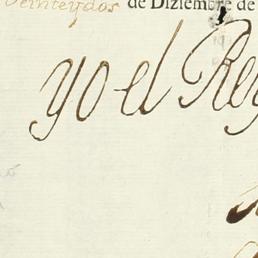 Veinteydos de Diziembre de
yo el Rey